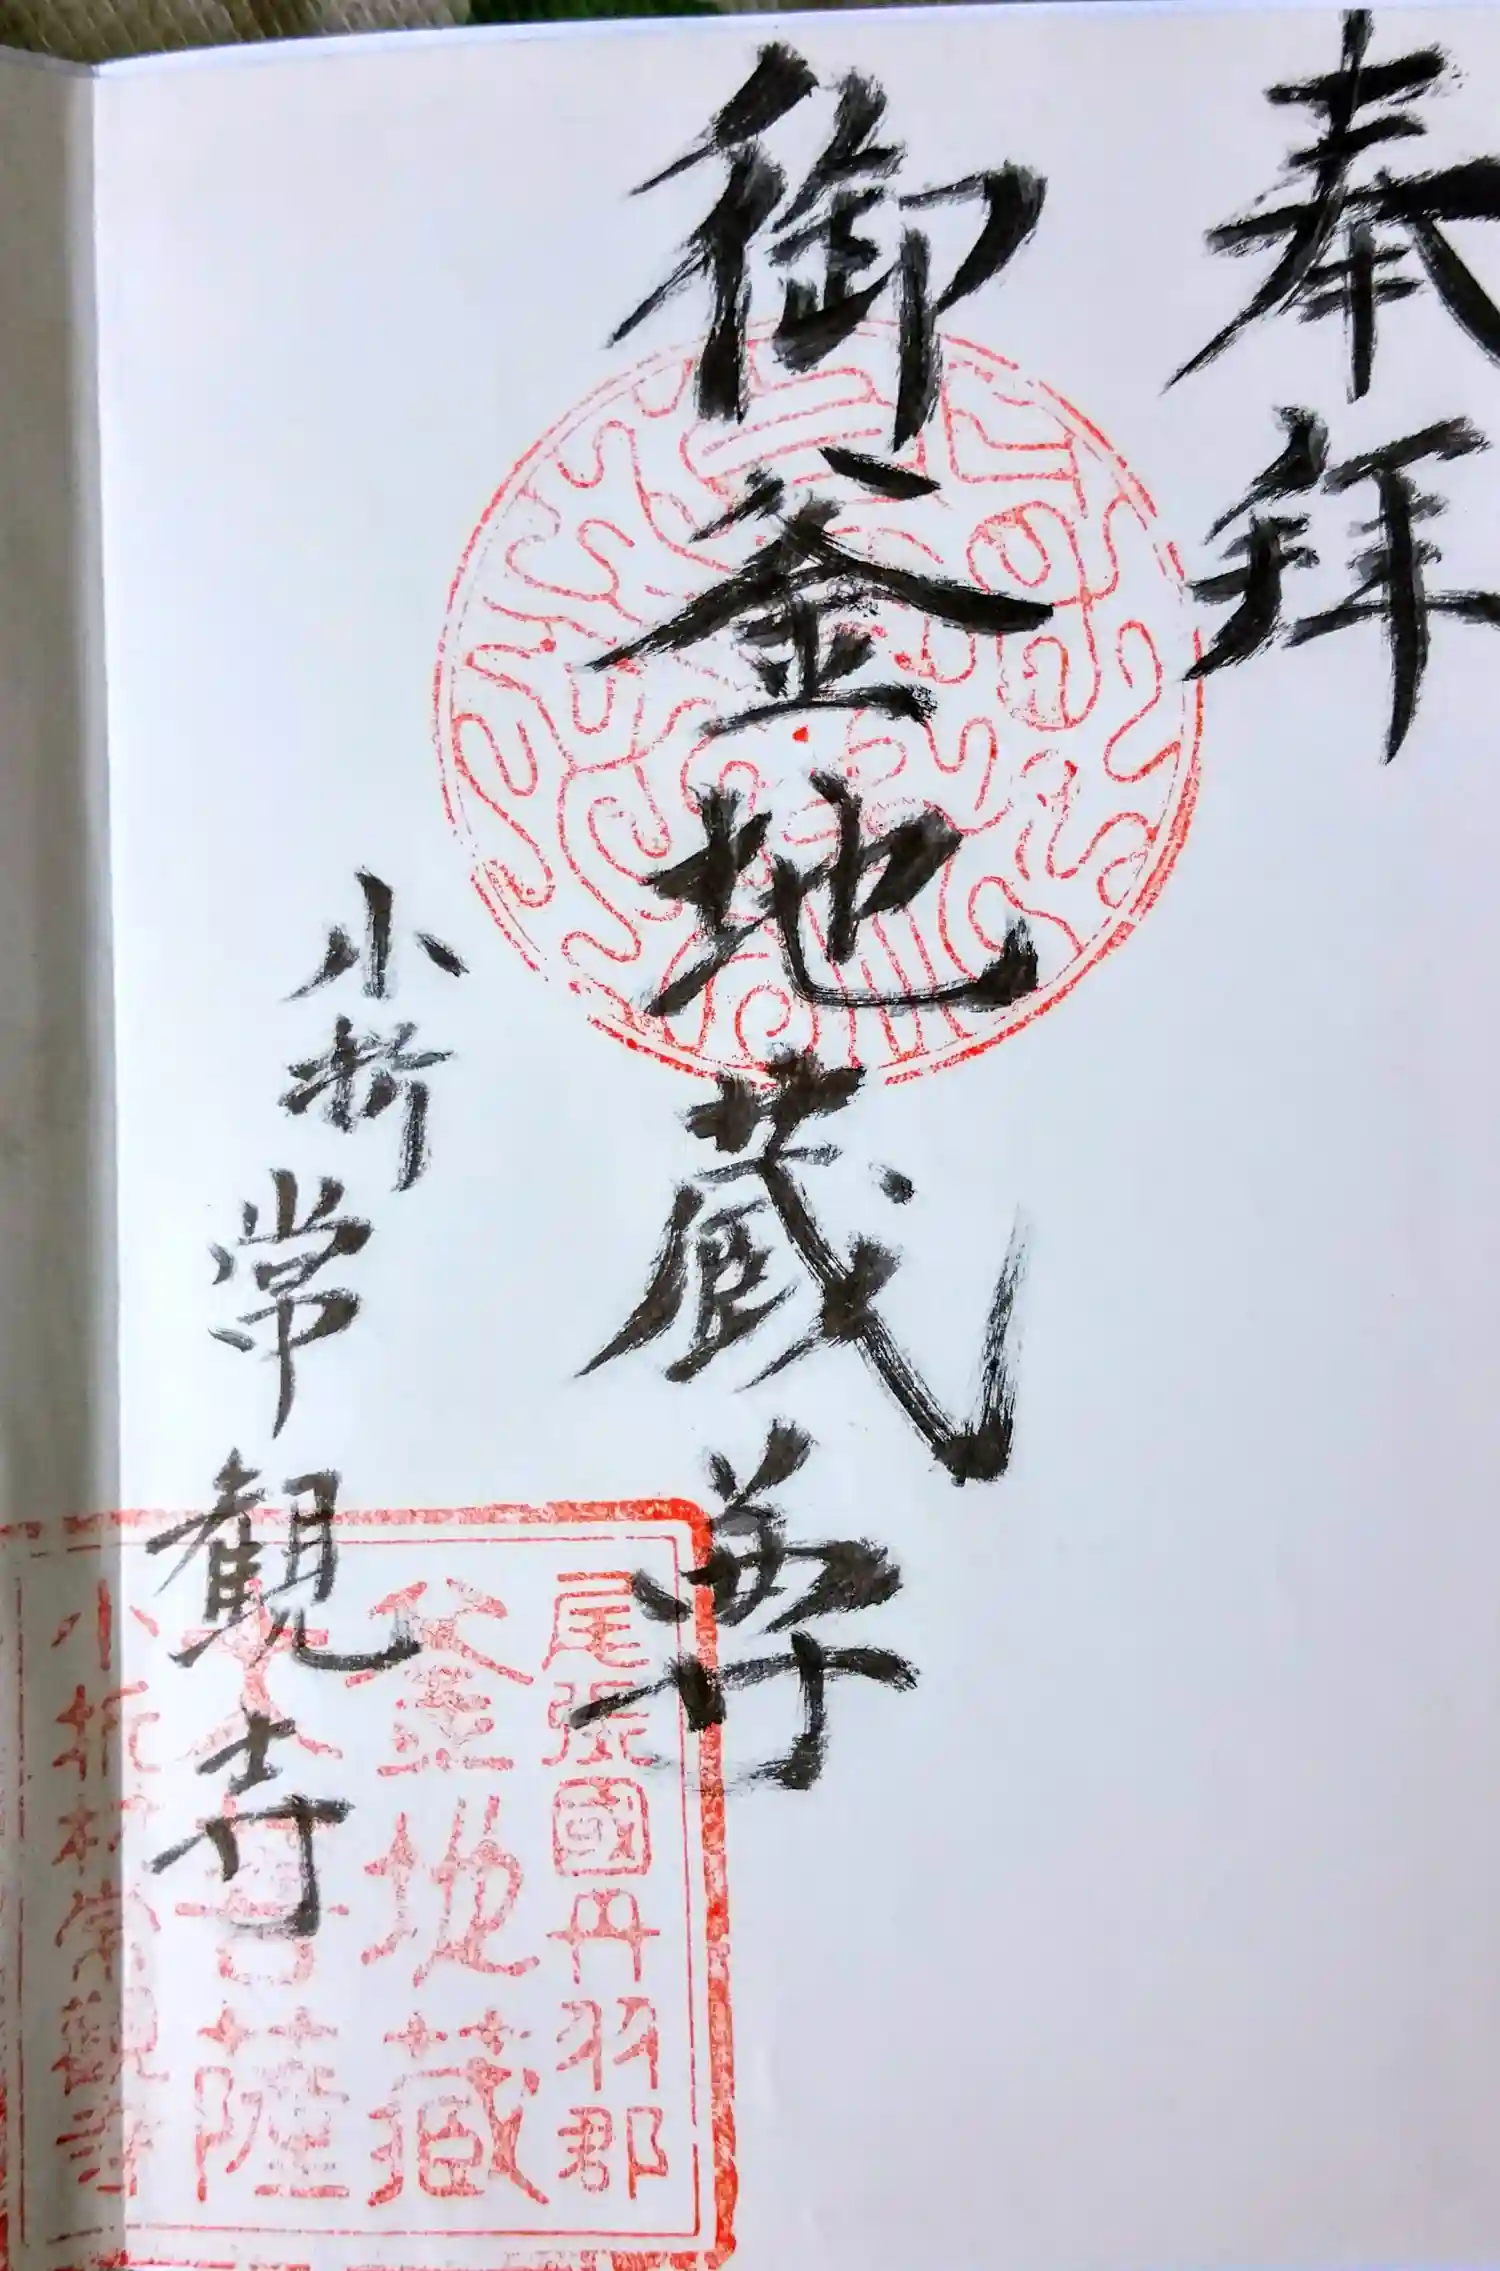 奉拜
御釜地蔵尊
小折常観寺
尾張國丹羽郡
釜地蔵
大菩薩
小折村常観寺